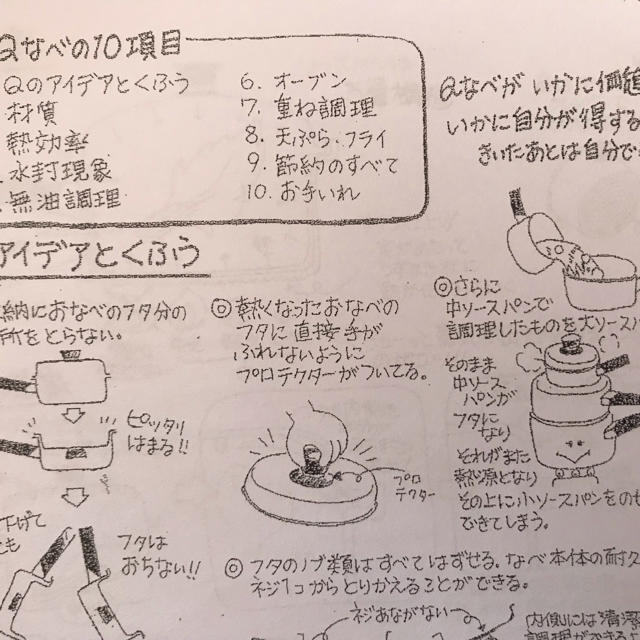 Qなべの10項目
Qのアイデアとくふう
材質
熱効率
水封現象
無油調理
6. オーブン
7. 重ね調理
8. 天ぷら、フライ
9. 節約のすべて
10. お手いれ
Qなべが いかに価値
いかに自分が得する
きいたあとは自分で
アイデアとくふう
納におなべのフタ分の
所をとらない。
ピッタリ
はまる!!
下げて
とも
フタは
おちない!!
◎熱くなったおなべの
フタに直接手が
ふれないように
プロテクターがついてる。
プロ
テクター
◎さらに
中ソースパンで
調理したものを大ソースパ
そのまま
中ソース
パンが
フタに
なり
それがまた
熱源となり
その上に小ソースパンをのせ
できてしまう。
◎フタのノブ類はすべてはずせる。なべ本体の耐久
ネジ1コからとりかえることができる。
ネジあながない
内側には清潔
調理ができ